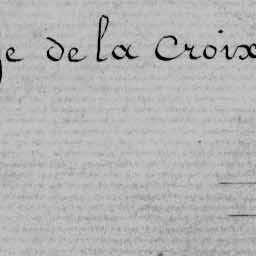 e de la Croix